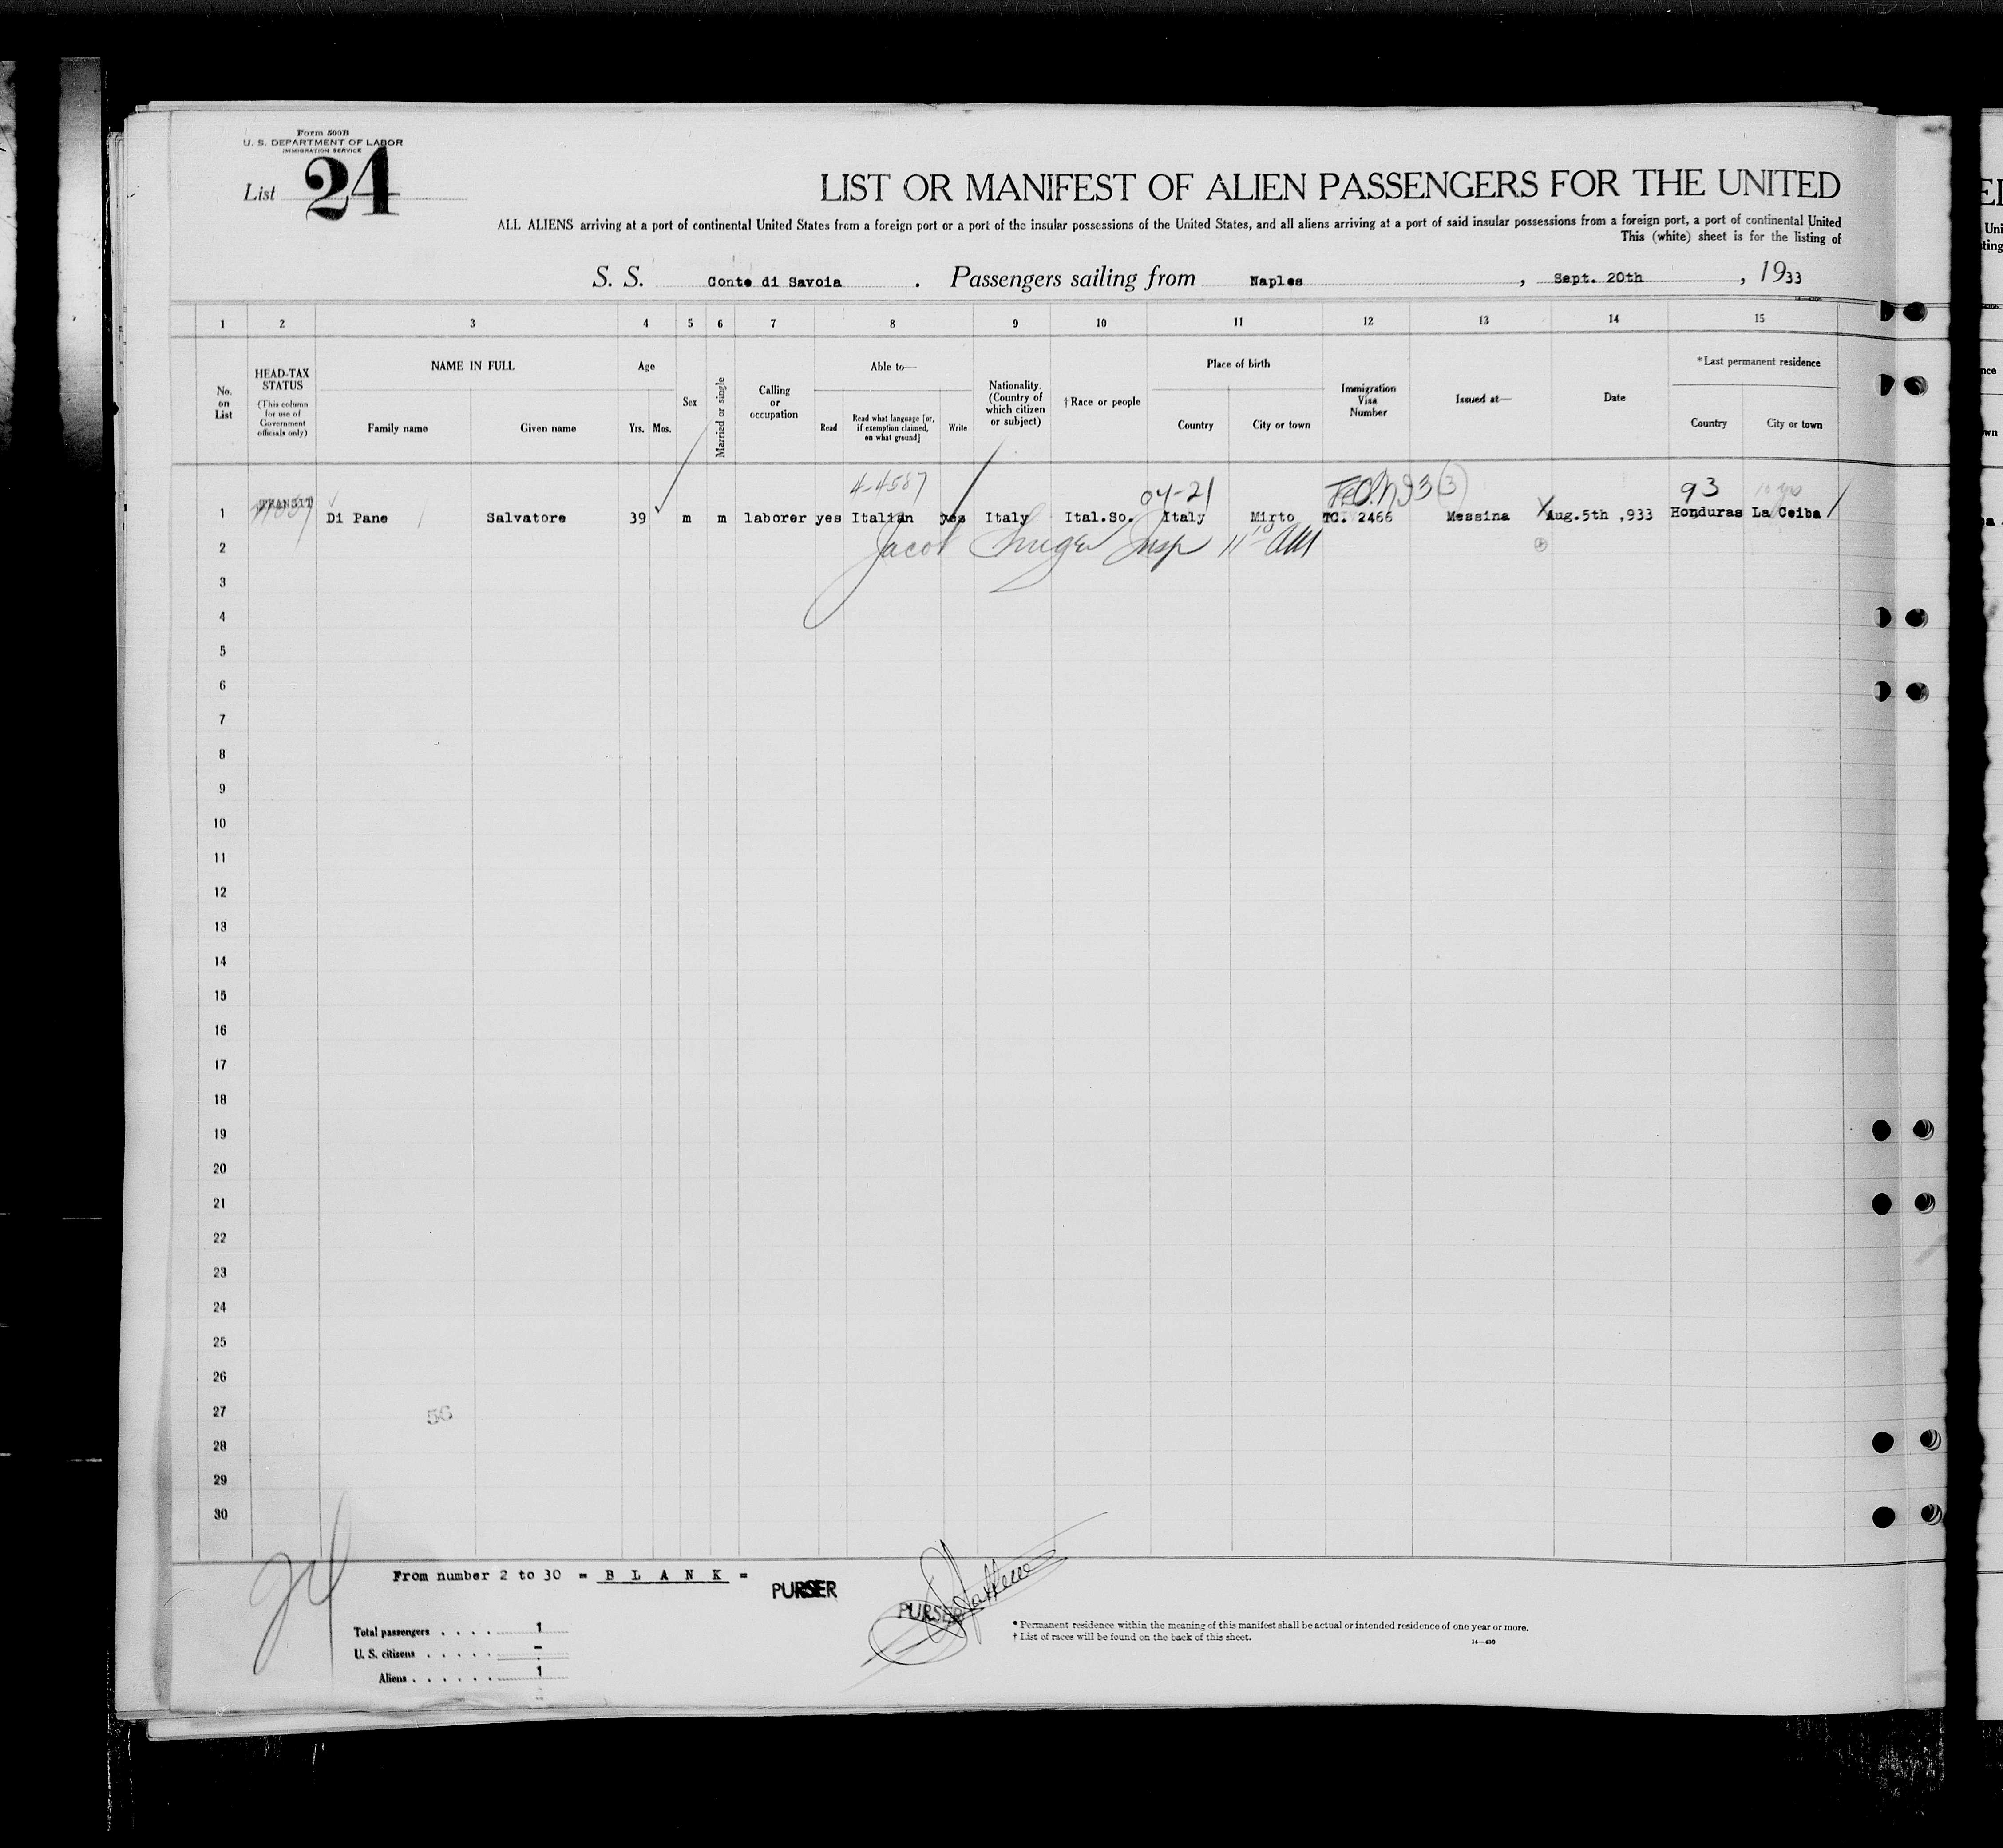 Form 500B
U. S. DEPARTMENT OF LABOR
IMMIGRATION SERVICE
List 24
LIST OR MANIFEST OF ALIEN PASSENGERS FOR THE UNITED
ALL ALIENS arriving at a port of continental United States from a foreign port or a port of the insular possessions of the United States, and all aliens arriving at a port of said insular possessions from a foreign port, a port of continental United
This (white) sheet is for the listing of
S. S. Conte di Savoia . Passengers sailing from Naples , Sept. 20th , 1933
1 2 3 4 5 6 7 8 9 10 11 12 13 14 15
No. on List
HEAD-TAX STATUS
(This column for use of Government officials only)
NAME IN FULL
Family name Given name
Age
Yrs. Mos.
Sex
Married or single
Calling or occupation
Able to—
Read
Read what language [or, if exemption claimed, on what ground]
Write
Nationality. (Country of which citizen or subject)
†Race or people
Place of birth
Country City or town
Immigration Visa Number
Issued at—
Date
*Last permanent residence
Country City or town
4-4587 04-21 93
1 TRANSIT Di Pane Salvatore 39 m m laborer yes Italian yes Italy Ital.So. Italy Mirto TC. 2466 Messina Aug.5th ,933 Honduras La Ceiba
Jacob Insp
2
3
4
5
6
7
8
9
10
11
12
13
14
15
16
17
18
19
20
21
22
23
24
25
26
27
56
28
29
30
From number 2 to 30 = B L A N K =
PURSER
PURSER
Total passengers . . . . 1
U. S. citizens . . . . . –
Aliens . . . . . . 1
* Permanent residence within the meaning of this manifest shall be actual or intended residence of one year or more.
† List of races will be found on the back of this sheet.
14—430